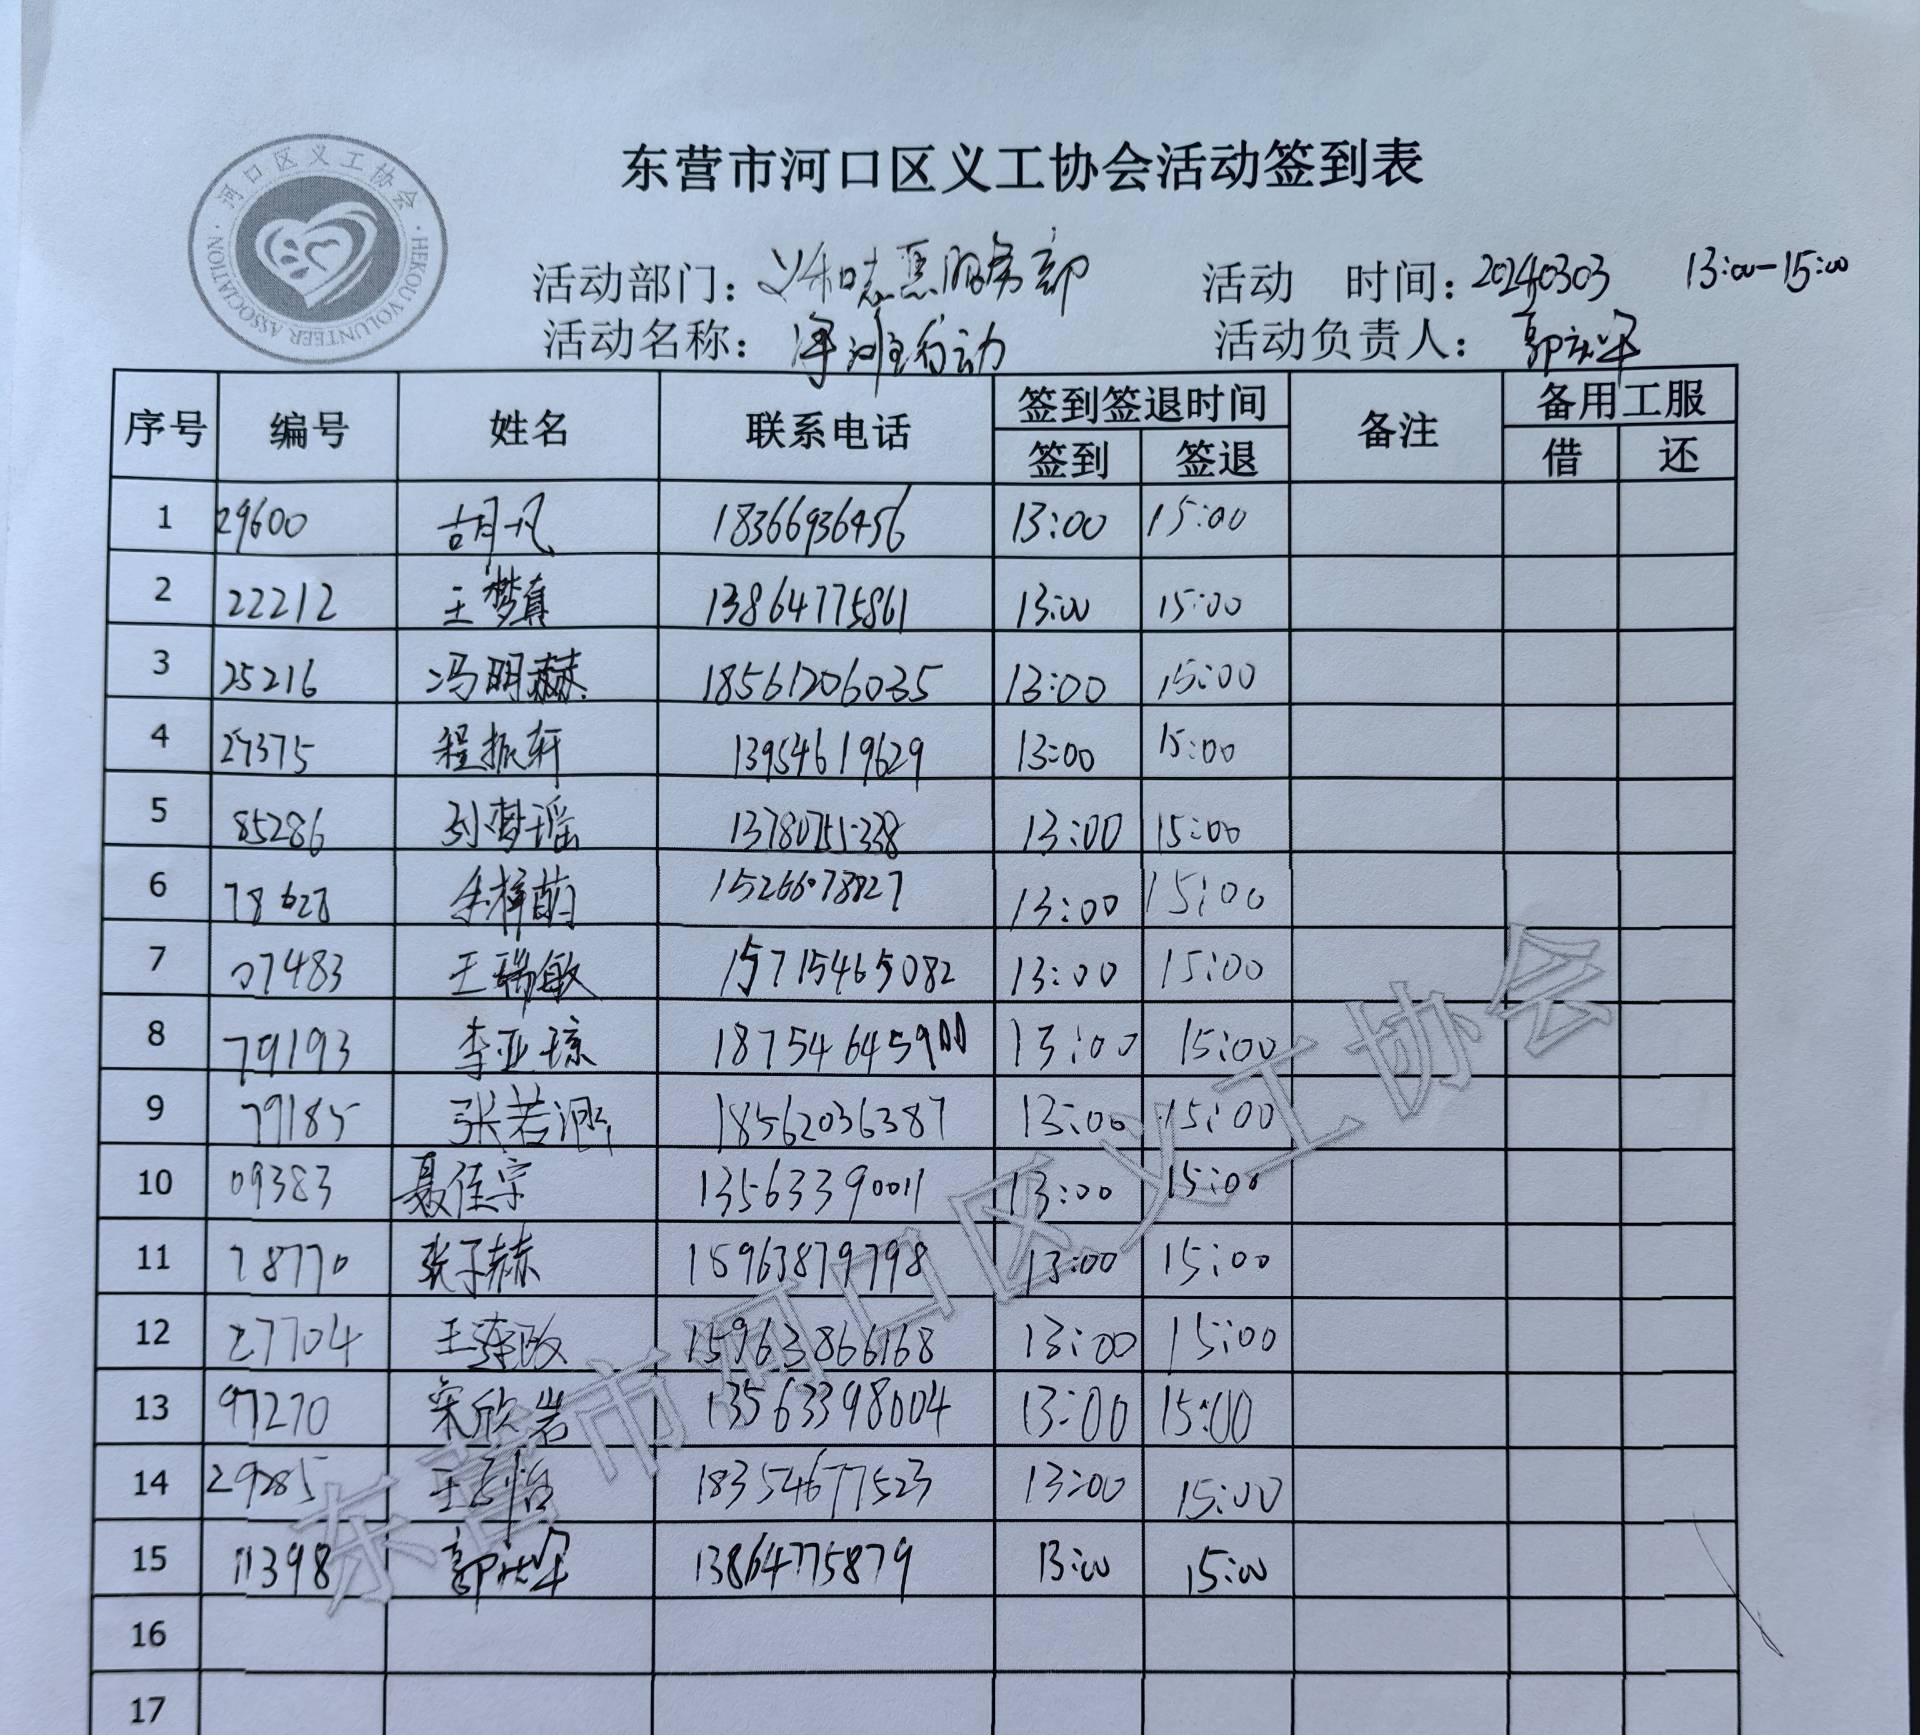 河口区义工协会
HEKOU VOLUNTEER ASSOCIATION
东营市河口区义工协会活动签到表
活动部门: 义和志愿服务部 活动 时间: 20240303 13:00-15:00
活动名称: 净滩行动 活动负责人: 郭庆军
序号 编号 姓名 联系电话 签到签退时间 备注 备用工服
签到 签退 借 还
1 29600 胡凡 18366936456 13:00 15:00
2 22212 王梦真 13864775861 13:00 15:00
3 25216 冯明赫 18561206035 13:00 15:00
4 27375 程振轩 13954619629 13:00 15:00
5 85286 刘梦瑶 13780755338 13:00 15:00
6 78628 梓萌 15266078827 13:00 15:00
7 07483 王瑞敏 15715465082 13:00 15:00
8 79193 李亚琼 18754645900 13:00 15:00
9 79185 张若涵 18562036387 13:00 15:00
10 09383 聂佳宇 13563390011 13:00 15:00
11 78770 张子赫 15963879798 13:00 15:00
12 27704 王 15963866168 13:00 15:00
13 97270 宋欣岩 13563398004 13:00 15:00
14 29285 王 怡 18354677523 13:00 15:00
15 11398 郭庆军 13864775879 13:00 15:00
16
17
东营市河口区义工协会